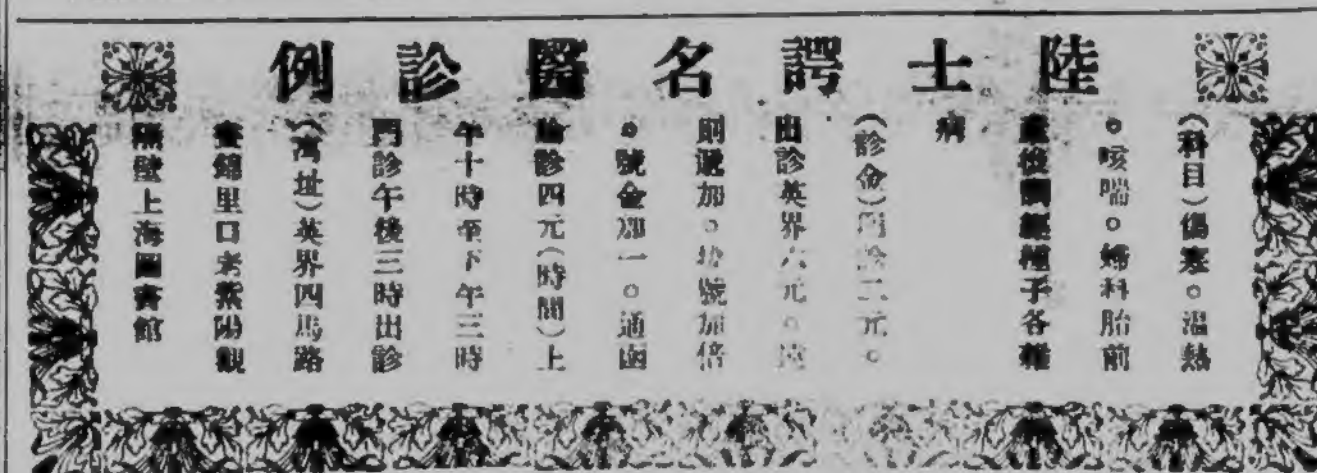 陸士諤名醫診例
(科目)傷寒。溫熱
。咳喘。婦科胎前
產後調經種子各種
病
(診金)門診二元。
出診英界六元。遠
則遞加。拔號加倍
。號金加一。通函
論診四元(時間)上
午十時至下午三時
門診午後三時出診
(寓址)英界四馬路
畫錦里口老紫陽觀
隔壁上海圖書館